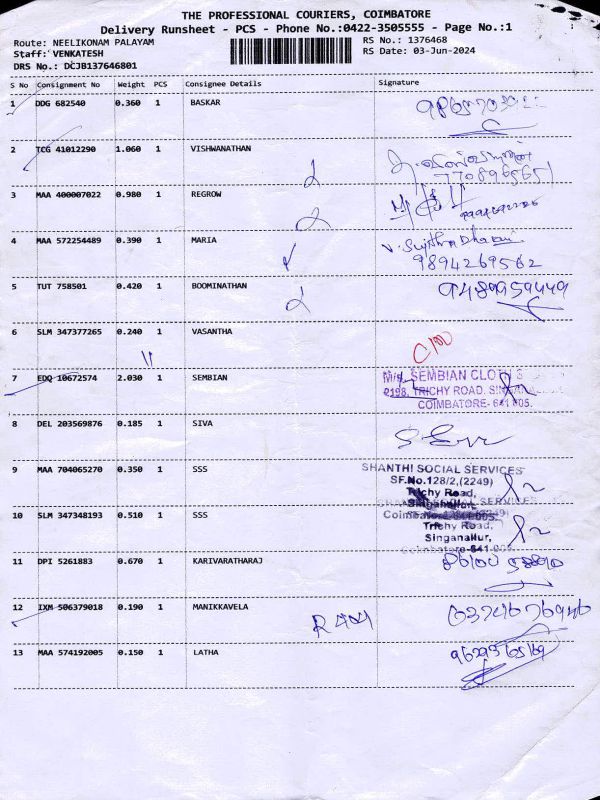 THE PROFESSIONAL COURIERS, COIMBATORE
Delivery Runsheet - PCS - Phone No.:0422-3505555 - Page No.:1
Route: NEELIKONAM PALAYAM
RS No.: 1376468
Staff: VENKATESH
RS Date: 03-Jun-2024
DRS No.: DCJB137646801
S No Consignment No Weight PCS Consignee Details Signature
1 DDG 682540 0.360 1 BASKAR
2 TCG 41012290 1.060 1 VISHWANATHAN
7708965651
3 MAA 400007022 0.980 1 REGROW
4 MAA 572254489 0.390 1 MARIA
V. Sujithra Dharani
9894269562
5 TUT 758501 0.420 1 BOOMINATHAN
9489959449
6 SLM 347377265 0.240 1 VASANTHA
7 EDQ 10672574 2.030 1 SEMBIAN
M/s. SEMBIAN CLOTH
2198, TRICHY ROAD,
COIMBATORE- 641 005.
8 DEL 203569876 0.185 1 SIVA
9 MAA 704065270 0.350 1 SSS
SHANTHI SOCIAL SERVICES
SF.No.128/2,(2249)
Trichy Road,
Singanallur,
10 SLM 347348193 0.510 1 SSS
SHANTHI SOCIAL SERVICES
Trichy Road,
Singanallur,
Coimbatore-641 005.
11 DPI 5261883 0.670 1 KARIVARATHARAJ
12 IXM 506379018 0.190 1 MANIKKAVELA
13 MAA 574192005 0.150 1 LATHA
9629565169